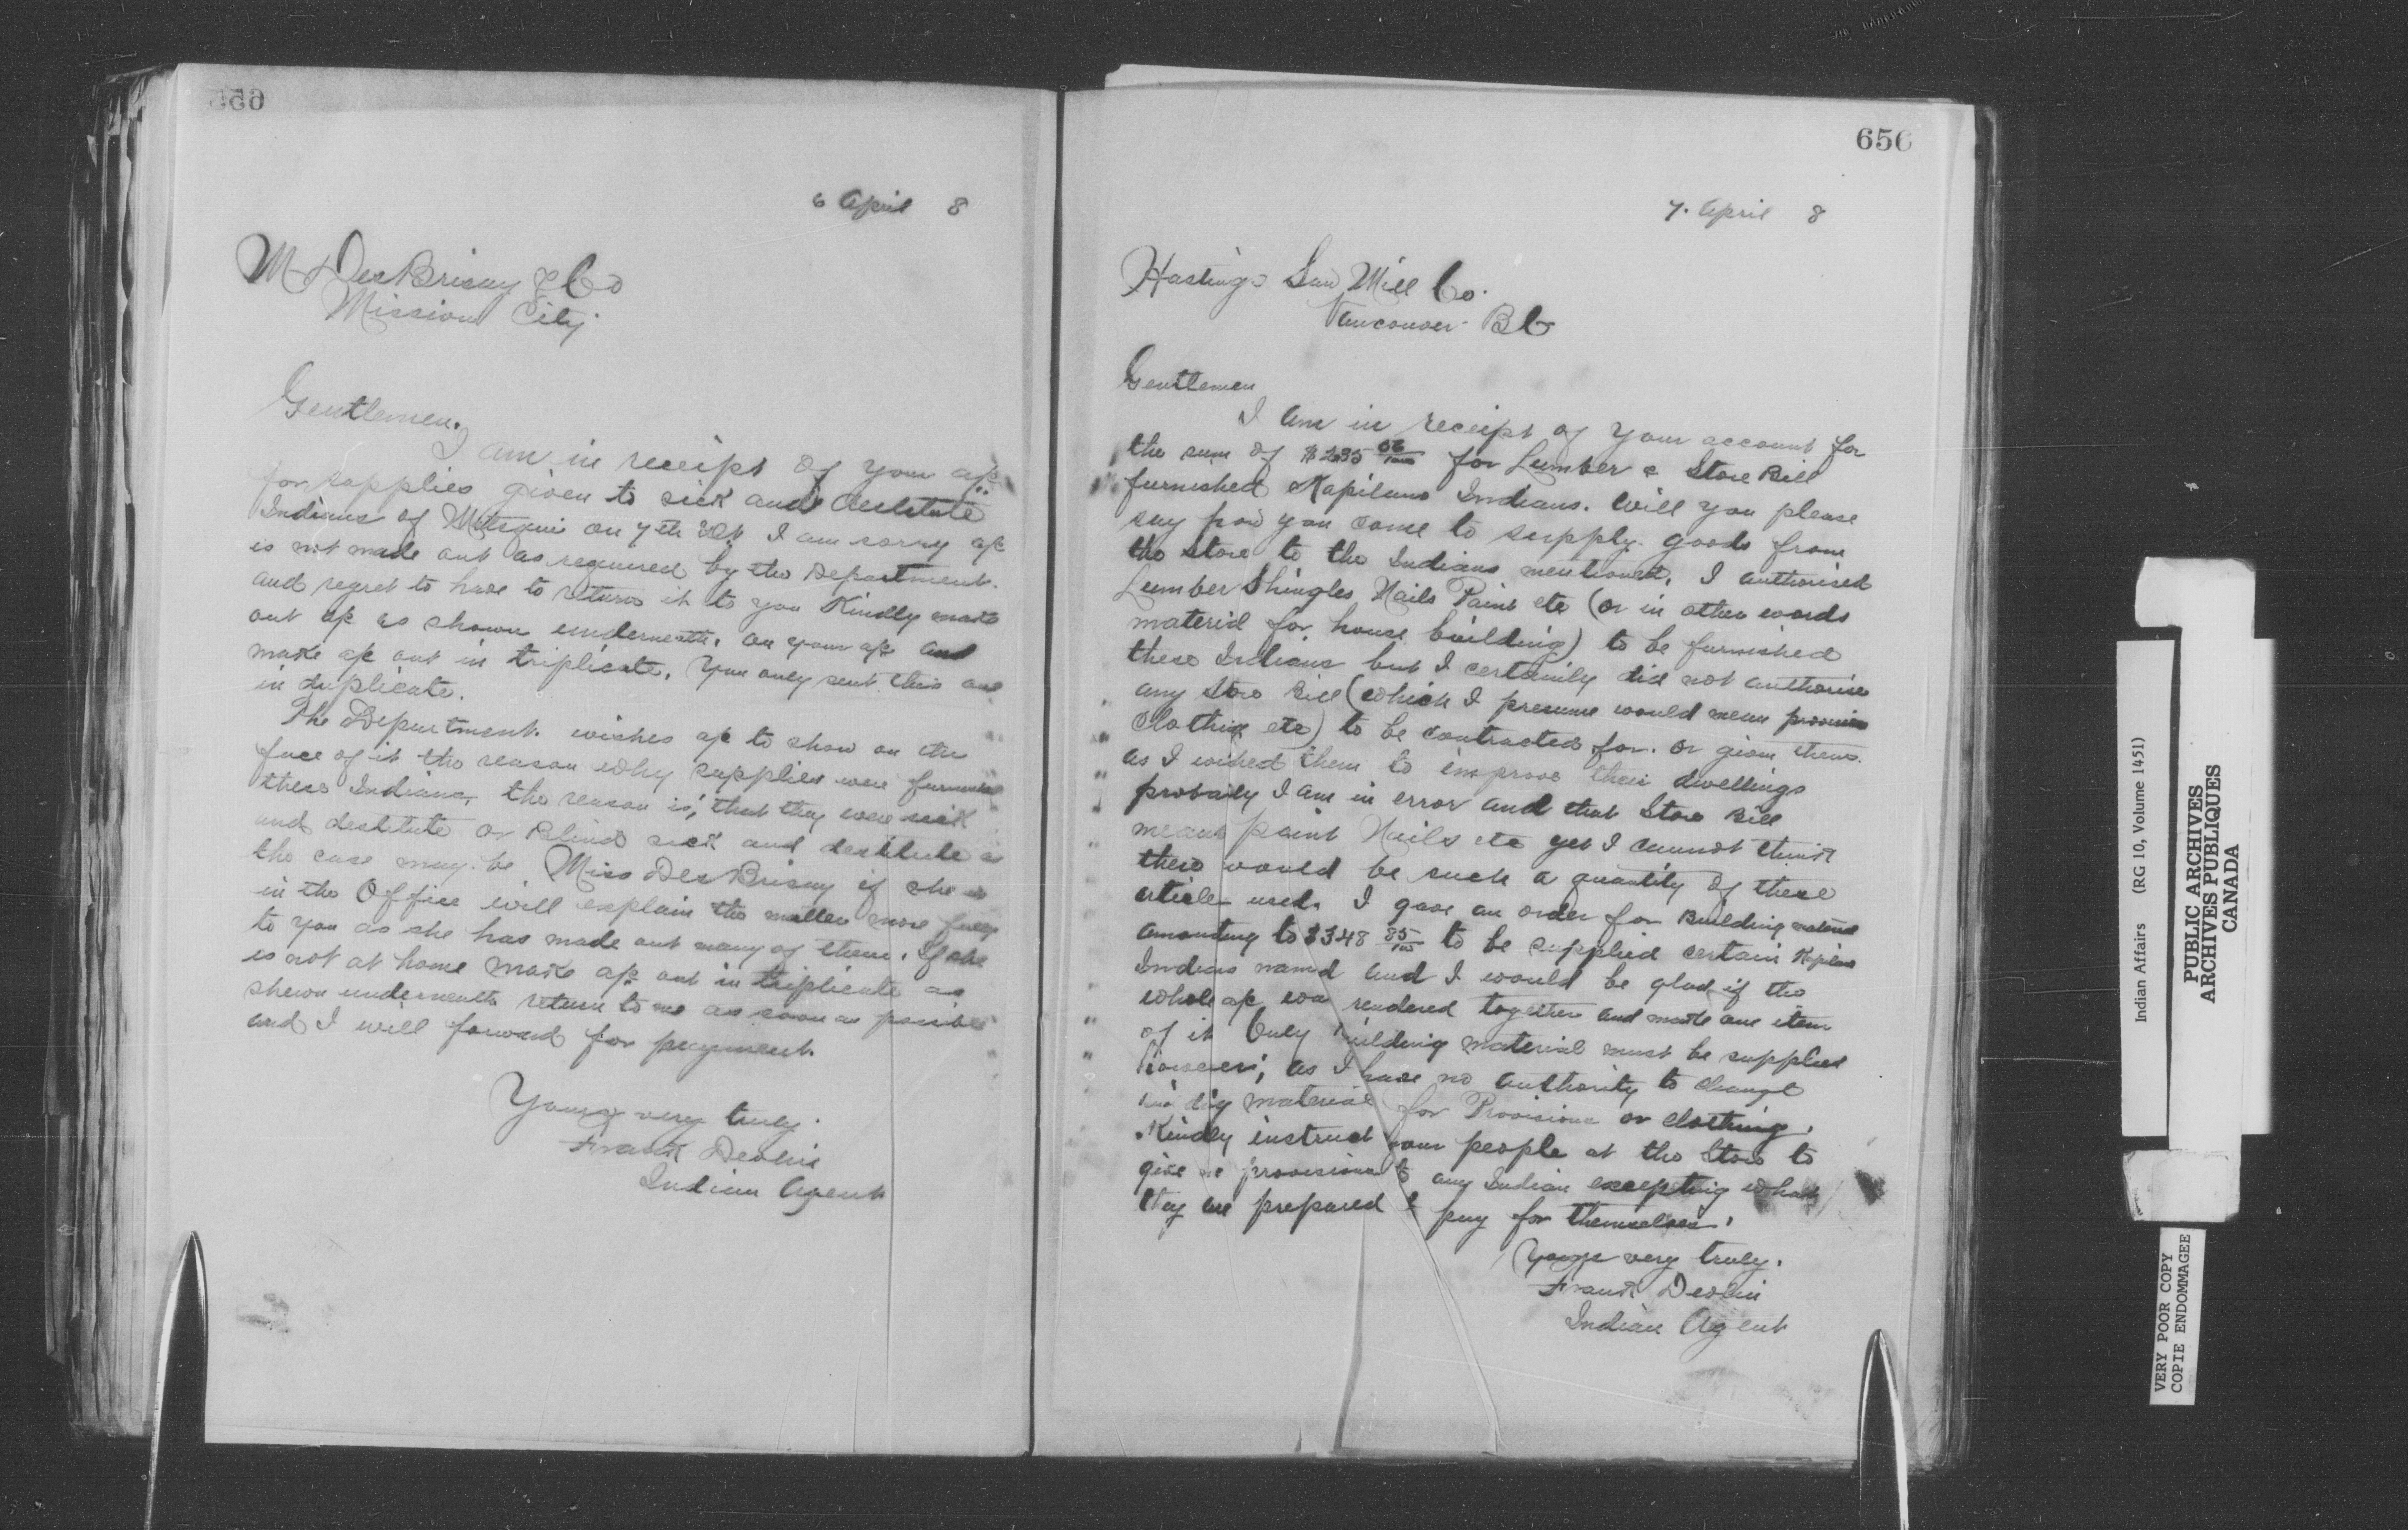 6 April 8
M DesBrisay & Co
Mission City
Gentlemen.
I am in receipt of your a/c
for supplies given to sick and destitute
Indians of Matsqui on 7th Ult. I am sorry a/c
is not made out as required by the Department.
and regret to have to return it to you Kindly make
out a/c as shown underneath. on your a/c and
make a/c out in triplicate. You only sent this one
in duplicate.
The Department. wishes a/c to show on the
face of it the reason why supplies were furnished
these Indians, the reason is, that they were sick
and destitute or Blind sick and destitute as
the case may be. Miss DesBrisay if she is
in the Office will explain the matter more fully
to you as she has made out many of them. If she
is not at home make a/c out in triplicate as
shewn underneath return to me as soon as possible
and I will forward for payment.
Yours very truly.
Frank Devlin
Indian Agent
656
7. April 8
Hastings Saw Mill Co.
Vancouver BC
Gentlemen
I am in receipt of your account for
the sum of $235 06/100 for Lumber & Store Bill
furnished Kapilano Indians. Will you please
say how you come to supply goods from
the store to the Indians mentioned. I authorised
Lumber Shingles Nails Paint etc (or in other words
material for house building) to be furnished
these Indians but I certainly did not authorise
any Store Bill (which I presume would mean provisions
Clothing etc) to be contracted for. or given them.
as I wished them to improve their dwellings
probably I am in error and that Store Bill
means paint Nails etc yet I cannot think
there would be such a quantity of these
article used. I gave an order for Building material
amounting to $348 85/100 to be supplied certain Kapilano
Indians named and I would be glad if the
whole a/c was rendered together and make one item
of it Only building material must be supplied
however; as I have no authority to change
material for Provisions or clothing.
Kindly instruct your people at the Store to
give no provisions to any Indian excepting what
they are prepared to pay for themselves.
Yours very truly.
Frank Devlin
Indian Agent
Indian Affairs (RG 10, Volume 1451)
PUBLIC ARCHIVES
ARCHIVES PUBLIQUES
CANADA
VERY POOR COPY
COPIE ENDOMMAGEE